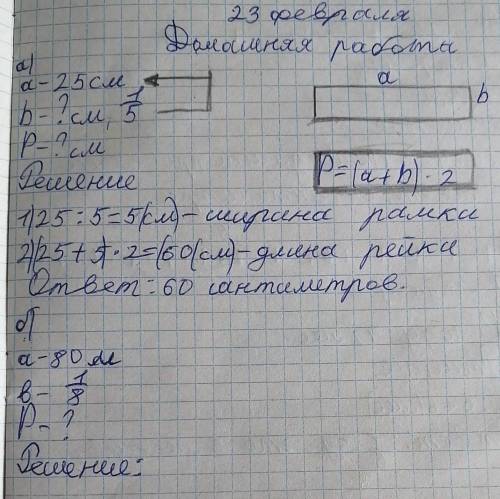 23 февраля
Домашняя работа
а)
a - 25 см
b - ? см, 1/5
P - ? см
a
b
P = (a + b) · 2
Решение
1) 25 : 5 = 5 (см) - ширина рамки
2) (25 + 5) · 2 = 60 (см) - длина рейки
Ответ: 60 сантиметров.
б)
а - 80 м
в - 1/8
P - ?
Решение: